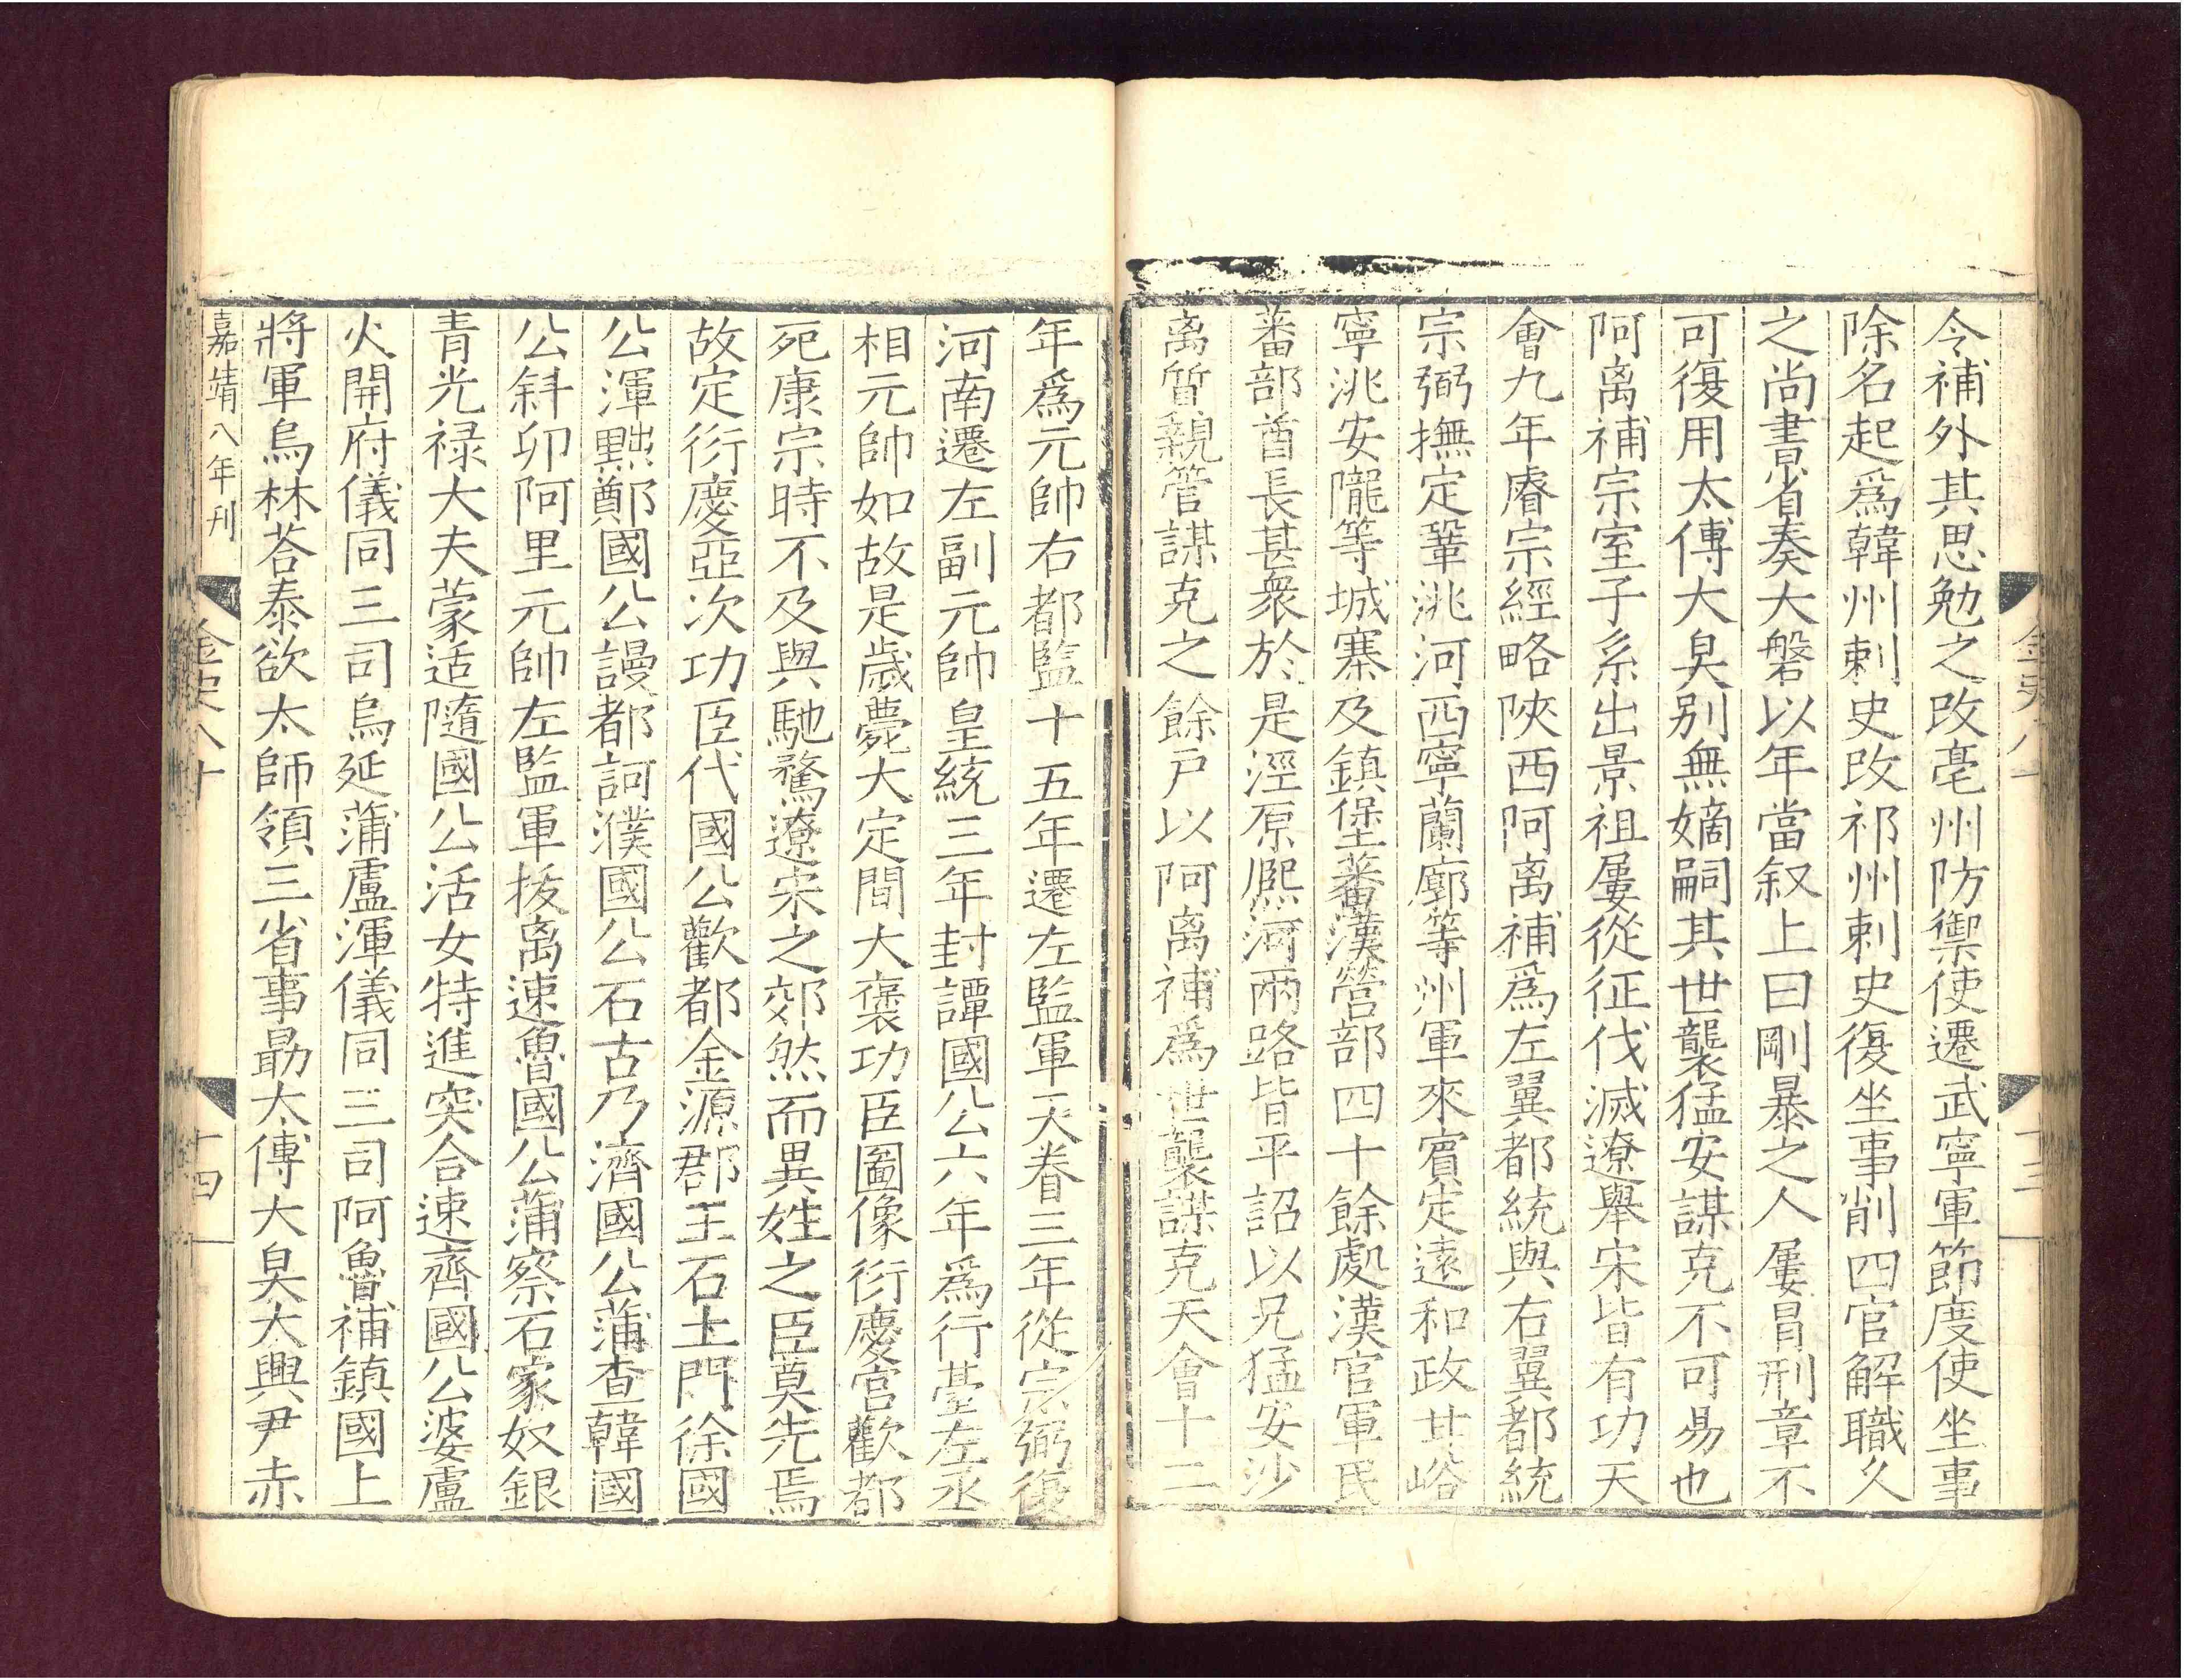 令補外其思勉之改亳州防禦使遷武寧軍節度使坐事
除名起爲韓州刺史改祁州刺史復坐事削四官解職久
之尚書省奏大磐以年當叙上曰剛暴之人屢冒刑章不
可復用太傅大㚖别無嫡嗣其世襲猛安謀克不可易也
阿离補宗室子系出景祖屢從征伐滅遼舉宋皆有功天
會九年睿宗經略陝西阿离補爲左翼都統與右翼都統
宗弼撫定鞏洮河西寧蘭廓等州軍來賓定遠和政甘峪
寧洮安隴等城寨及鎮堡蕃漢營部四十餘處漢官軍民
蕃部酋長甚衆於是涇原熈河兩路皆平詔以兄猛安沙
离質親管謀克之餘戸以阿离補爲世襲謀克天會十二
年爲元帥右都監十五年遷左監軍天眷三年從宗弼復
河南遷左副元帥皇統三年封譚國公六年爲行臺左丞
相元帥如故是歲薨大定間大褒功臣圖像衍慶宫歡都
死康宗時不及與馳騖遼宋之郊然而異姓之臣莫先焉
故定衍慶亞次功臣代國公歡都金源郡王石土門徐國
公渾黜鄭國公謾都訶濮國公石古乃濟國公蒲查韓國
公斜卯阿里元帥左監軍拔离速魯國公蒲察石家奴銀
青光禄大夫蒙适隨國公活女特進突合速齊國公婆盧
火開府儀同三司烏延蒲盧渾儀同三司阿魯補鎮國上
將軍烏林荅泰欲太師領三省事勗太傅大㚖大興尹赤
嘉靖八年刊
金史八十
十四